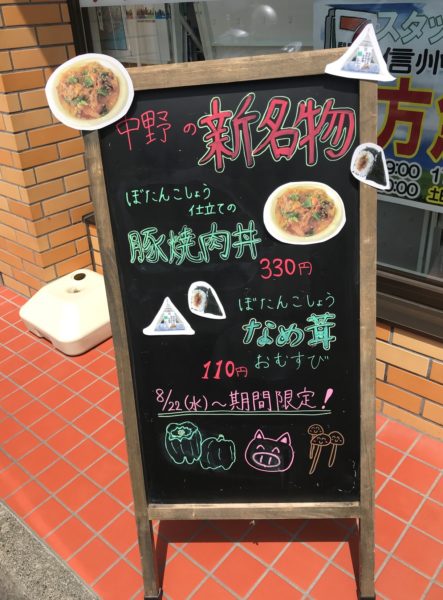 中野の新名物
ぼたんこしょう
仕立ての
豚焼肉丼
330円
ぼたんこしょう
なめ茸
110円
おむすび
8/22(水)～期間限定!
スタッ
信州
方